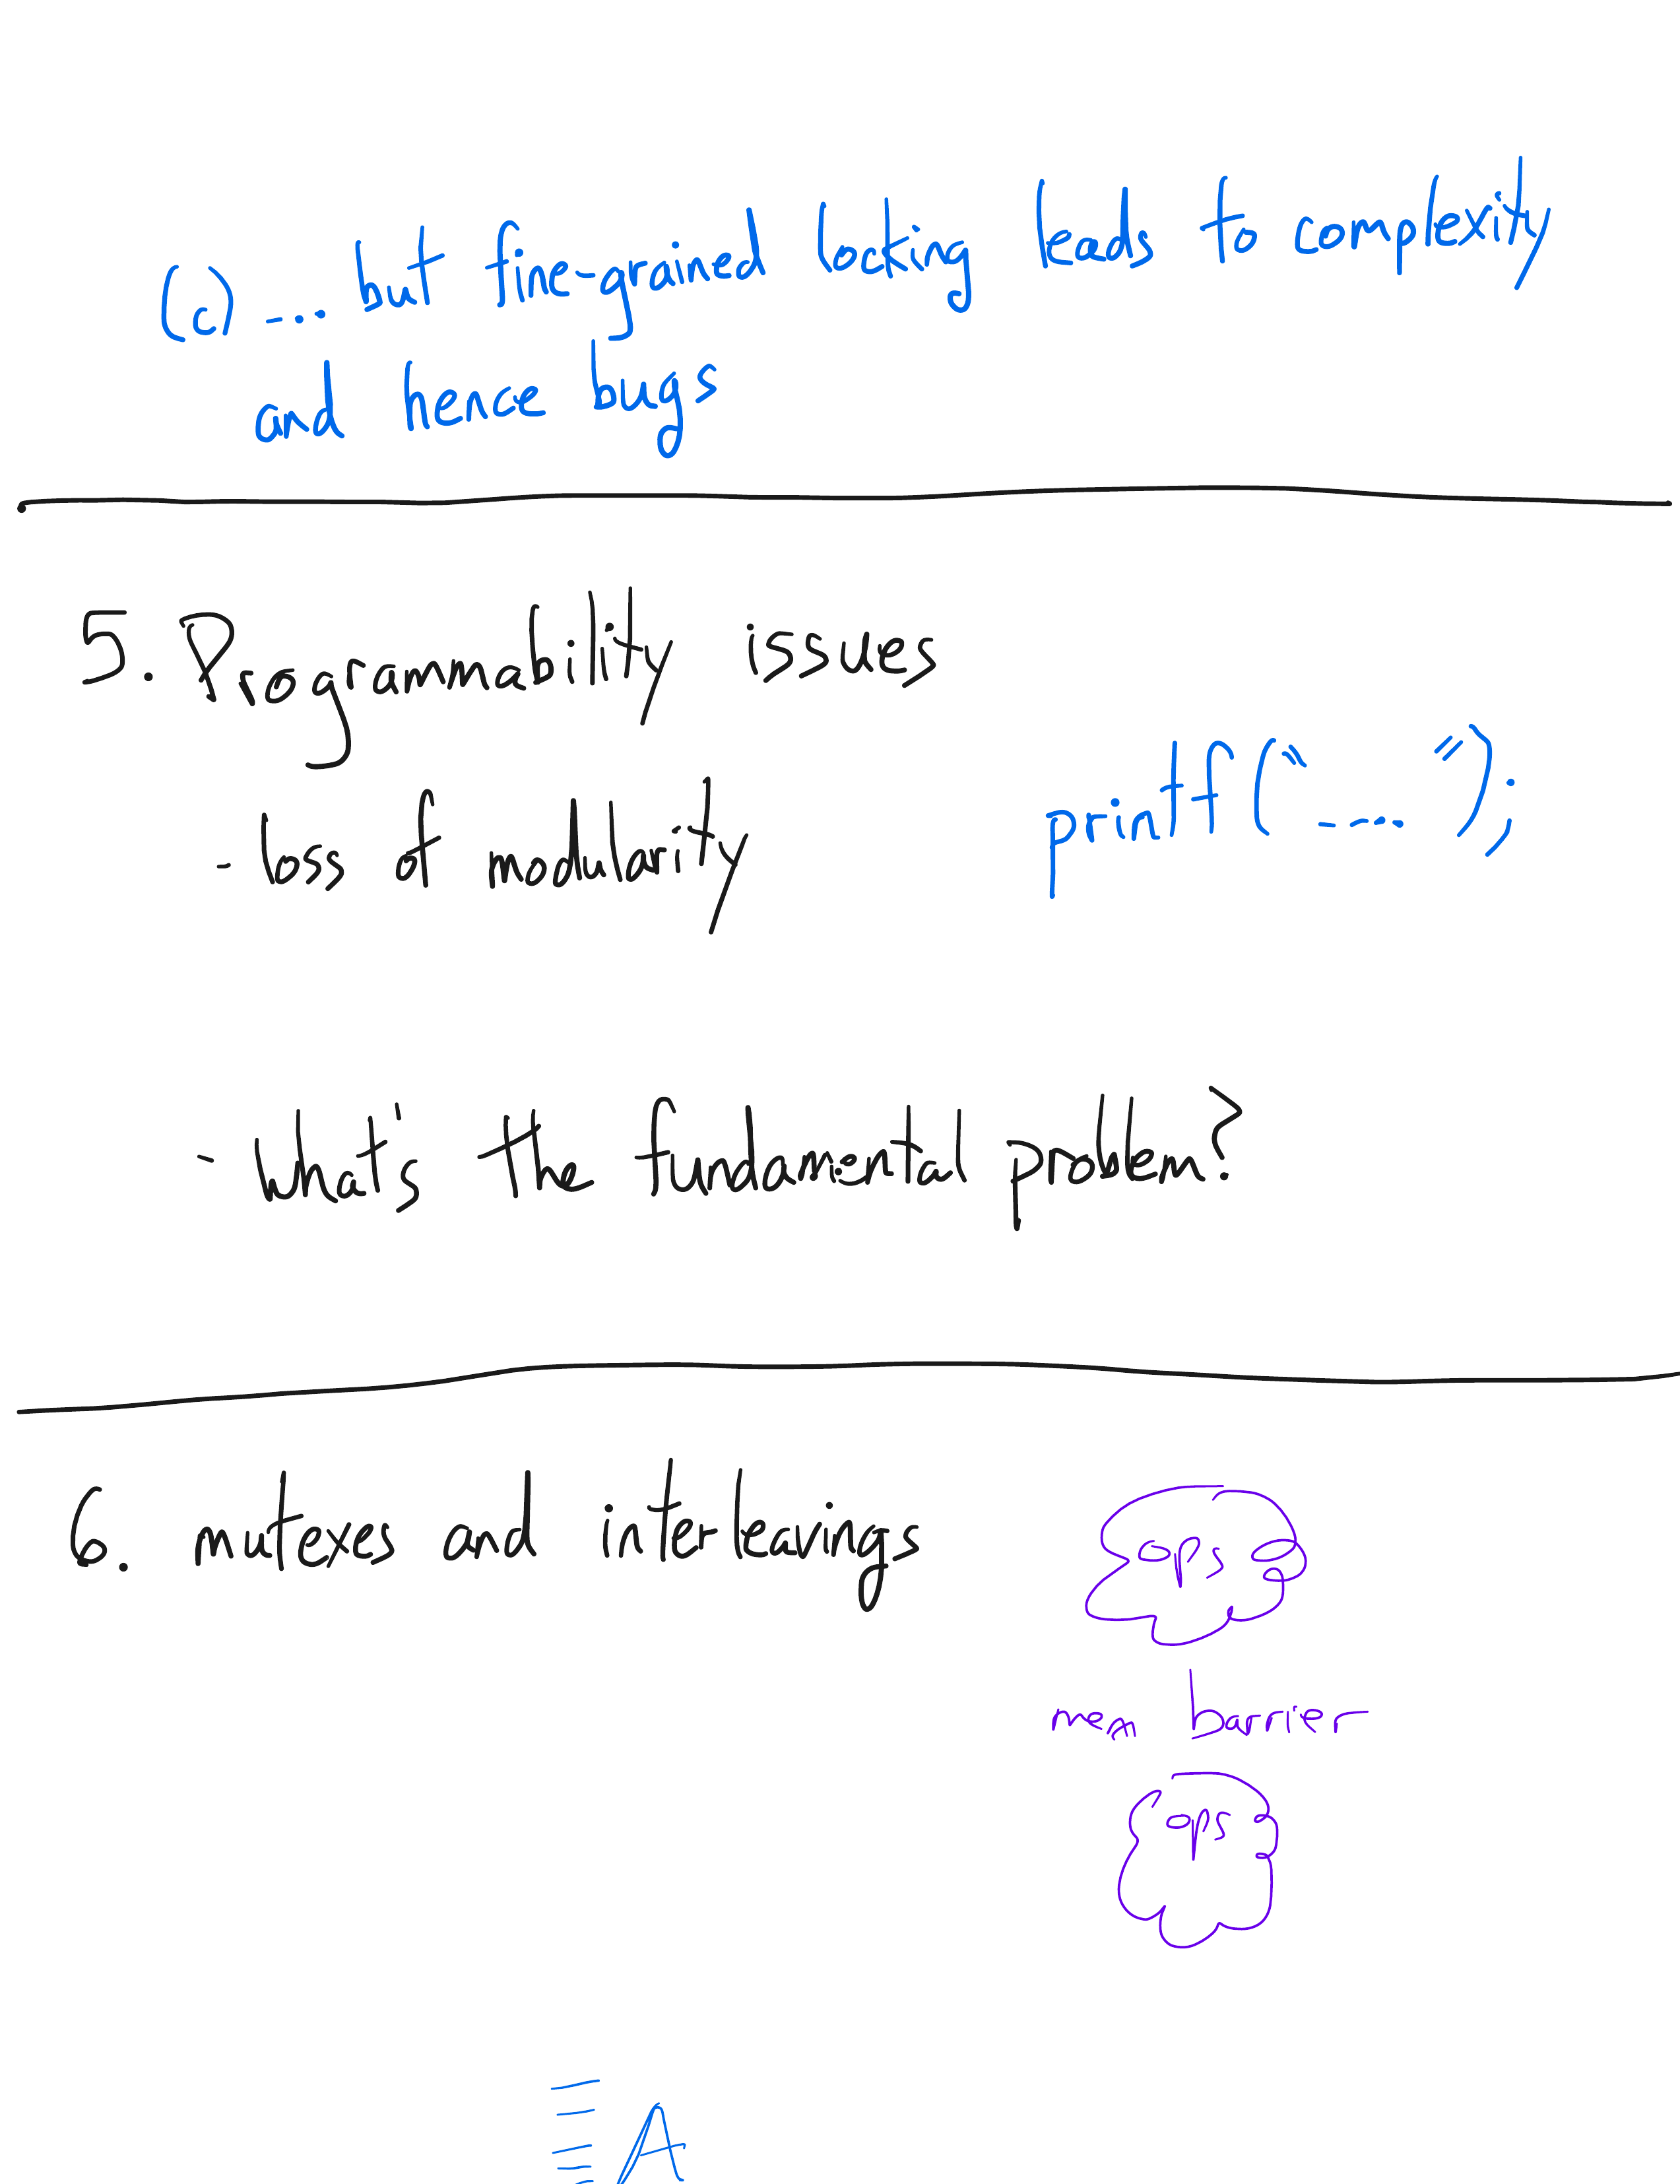 (c) ... but fine-grained locking leads to complexity
and hence bugs
5. Programmability issues
- loss of modularity
printf("....");
- What's the fundamental problem?
6. mutexes and interleavings
ops
mem barrier
ops
A